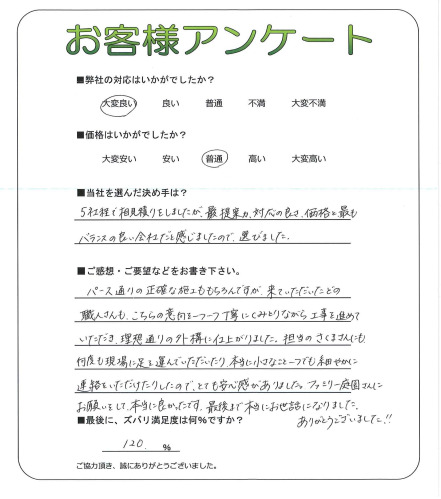 お客様アンケート
■弊社の対応はいかがでしたか?
大変良い 良い 普通 不満 大変不満
■価格はいかがでしたか?
大変安い 安い 普通 高い 大変高い
■当社を選んだ決め手は?
5社程で相見積りをしましたが、最提案力、対応の良さ、価格と最も
バランスの良い会社だと感じましたので、選びました。
■ご感想・ご要望などをお書き下さい。
パース通りの正確な施工ももちろんですが、来ていただいたどの
職人さんも、こちらの意向を一つ一つ丁寧にくみとりながら工事を進めて
いただき、理想通りの外構に仕上がりました。担当のさくまさんにも
何度も現場に足を運んでいただいたり、本当に小さなこと一つでも細やかに
連絡をいただけたりしたので、とても安心感がありました。ファミリー庭園さんに
お願いをして、本当に良かったです。最後まで本当にお世話になりました。
ありがとうございました!!
■最後に、ズバリ満足度は何%ですか?
120 %
ご協力頂き、誠にありがとうございました。